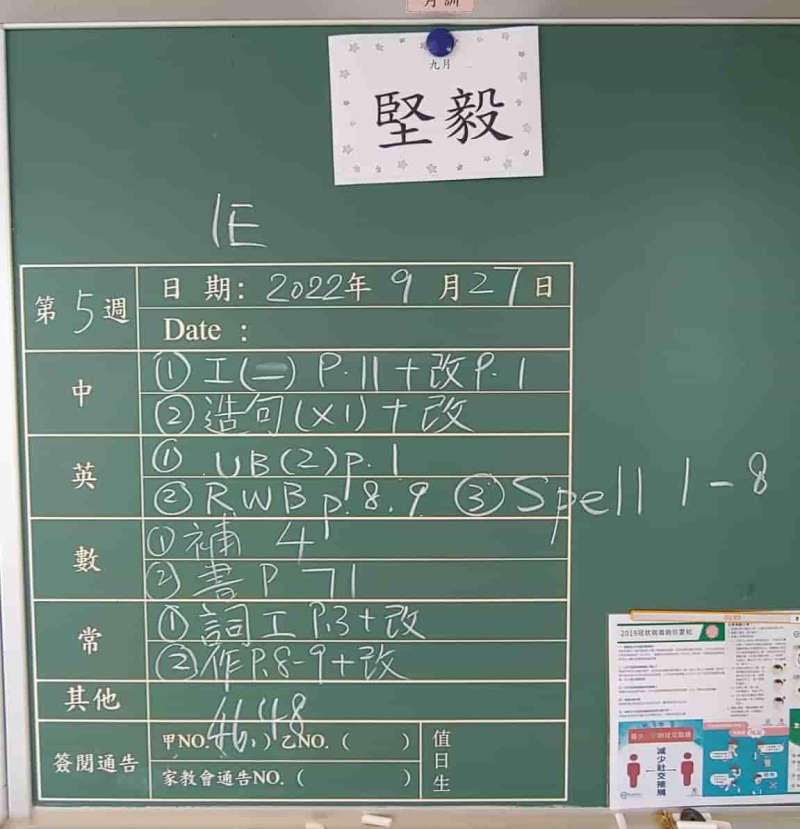 月訓
九月
堅毅
1E
第5週
日 期：2022年 9 月27日
Date :
中
① 工(一) P.11+改P.1
② 造句(x1)+改
英
① UB(2)p.1
② RWB p.8.9 ③ Spell 1-8
數
① 補 4
② 書P 71
常
① 詞工 P.3+改
② 作P.8-9+改
其他
簽閱通告
甲NO.(46,48) 乙NO.( )
家教會通告NO.( )
值日生
減少社交接觸